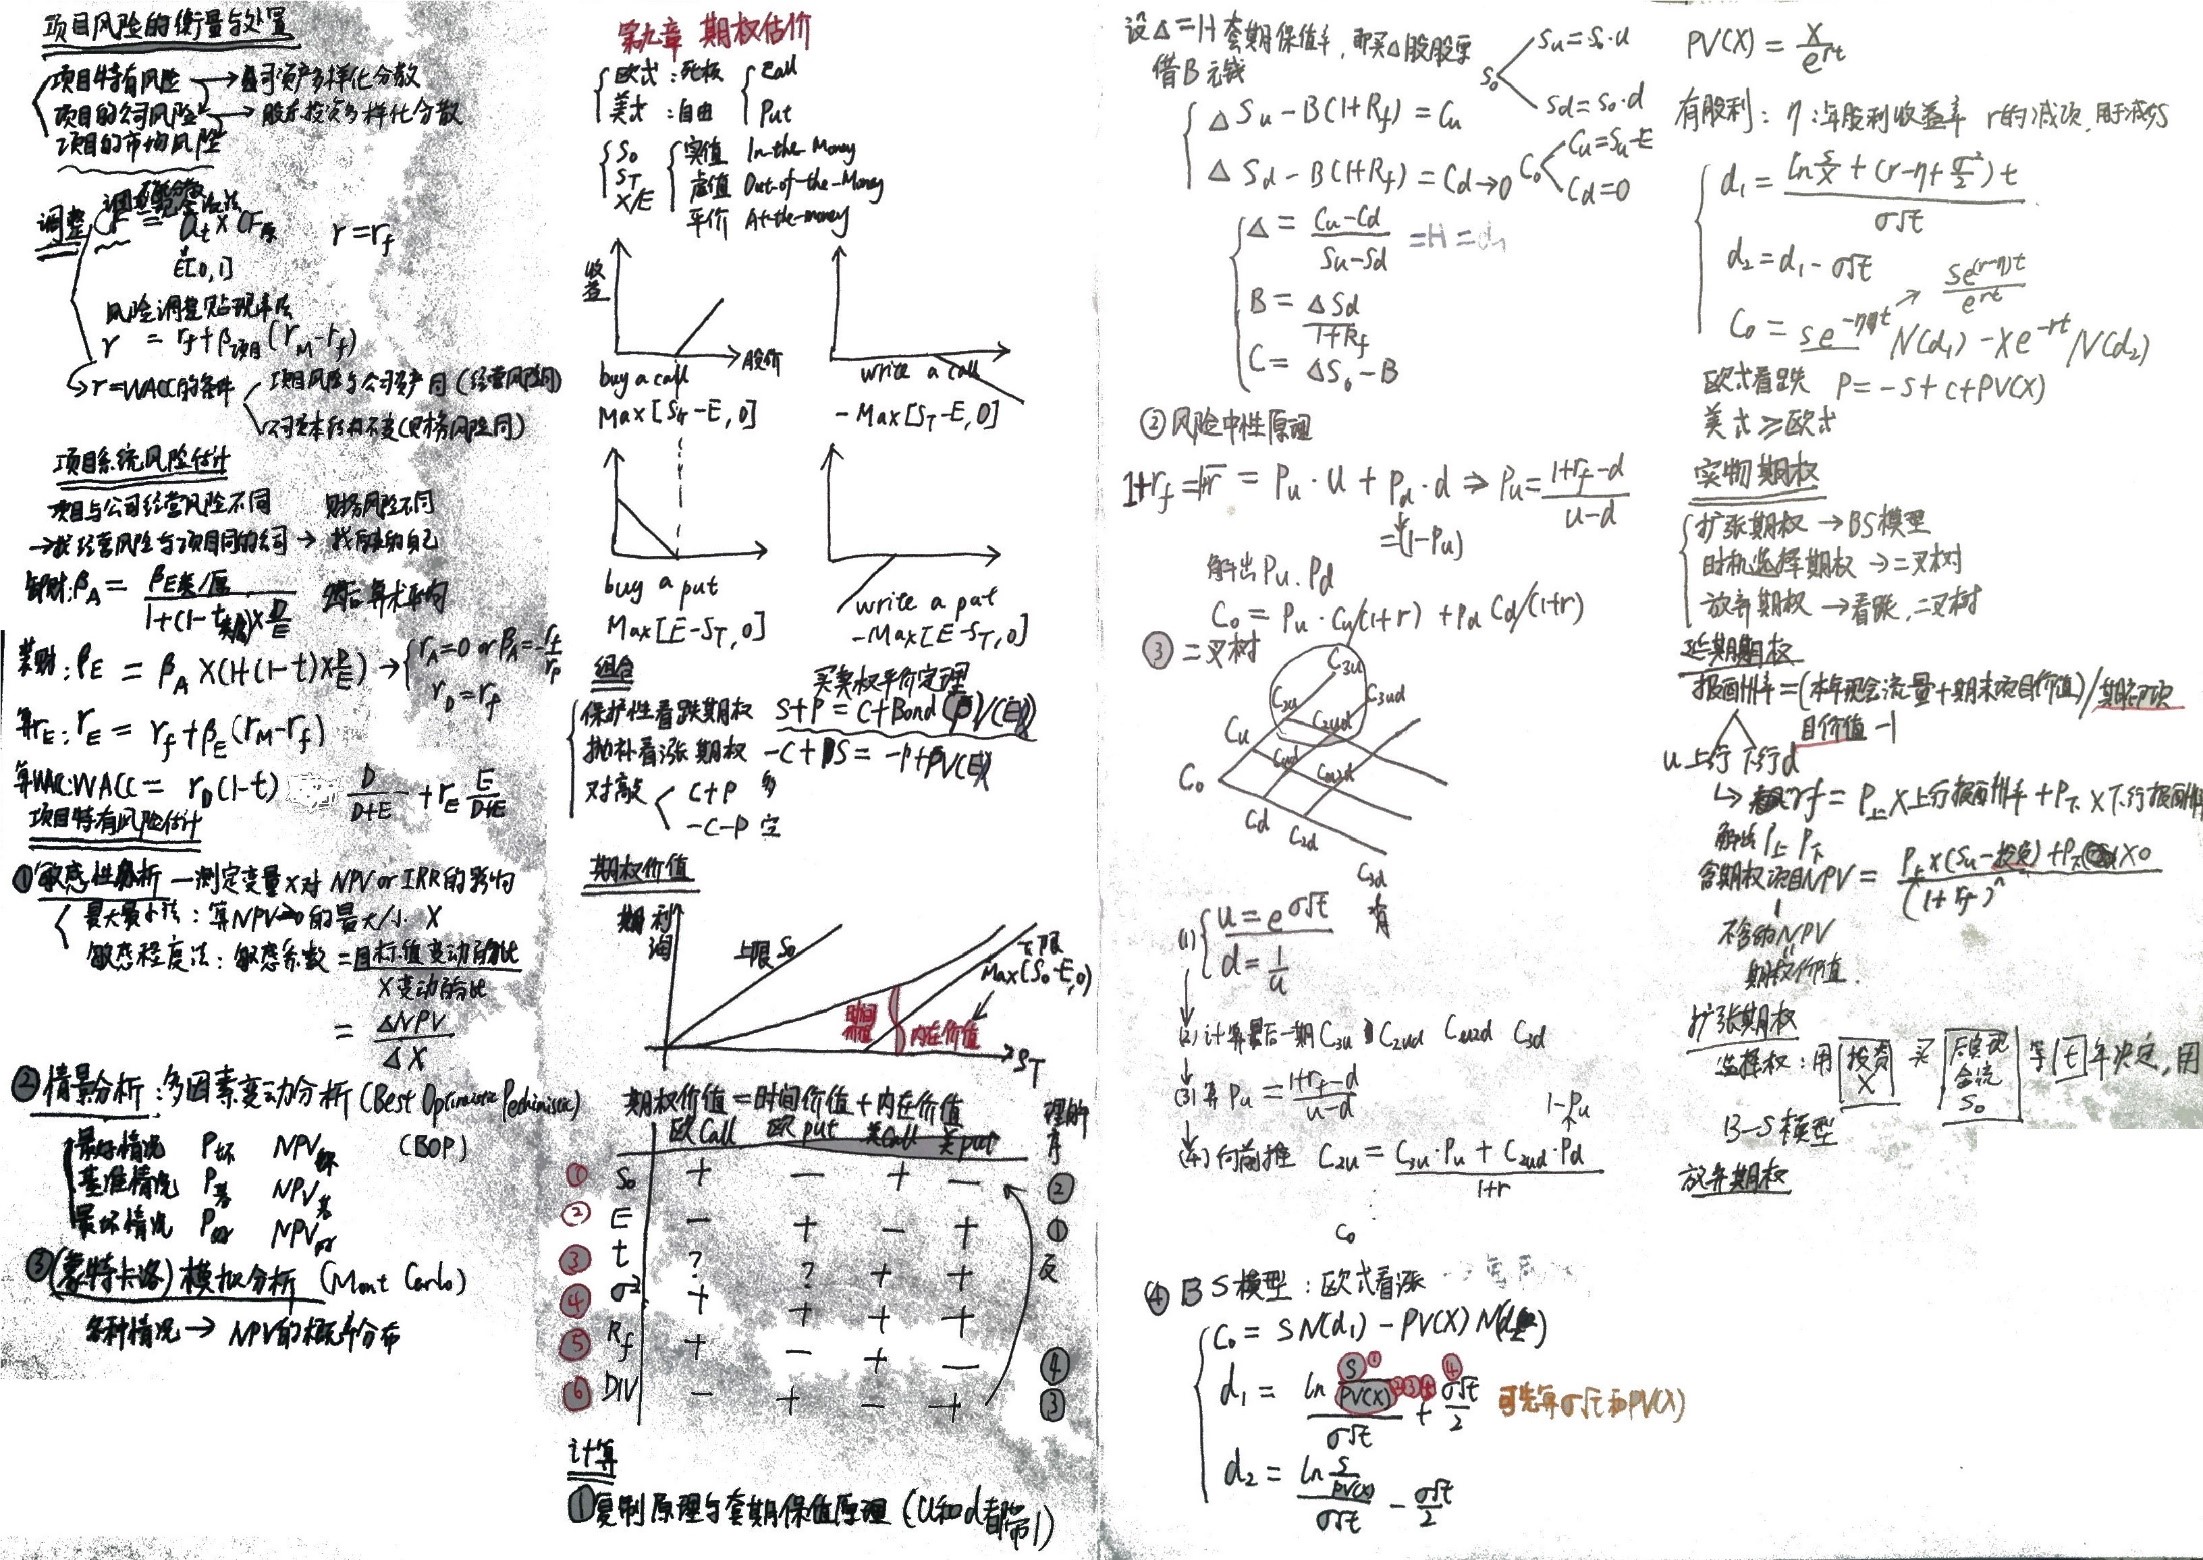 项目风险的衡量与处置
项目特有风险 → 公司资产多样化分散
项目的公司风险 → 股东投资多样化分散
项目的市场风险
调整
CF = at × CF原 r = rf
∈[0,1]
风险调整贴现率法
r = rf + β项目(rM - rf)
→ r=WACC的条件
项目风险与公司资产同(经营风险同)
公司资本结构不变(财务风险同)
项目系统风险估计
项目与公司经营风险不同 财务风险不同
→找经营风险与项目同的公司 →
卸财: βA = βE类/原 / 1+(1-t类原)×D/E 然后算术平均
装财: βE = βA×(1+(1-t)×D/E) → { rA=0 or βA=-rf/rp
rD=rf
算rE: rE = rf + βE(rM - rf)
算WACC: WACC = rD(1-t) D/D+E + rE E/D+E
项目特有风险估计
①敏感性分析 — 测定变量X对NPV or IRR的影响
最大最小法: 算NPV=0的最大/小 X
敏感程度法: 敏感系数 = 目标值变动百分比
X变动百分比
= ΔNPV / ΔX
②情景分析: 多因素变动分析 (Best Optimistic Pessimistic)
最好情况 P好 NPV好 (BOP)
基准情况 P基 NPV基
最坏情况 P坏 NPV坏
③(蒙特卡洛)模拟分析 (Mont Carlo)
各种情况 → NPV的概率分布
第九章 期权估价
欧式:死板 { Call
美式:自由 Put
S0 实值 In-the-Money
ST 虚值 Out-of-the-Money
X/E 平价 At-the-money
收益
股价
buy a call write a call
Max[ST-E,0] -Max[ST-E,0]
buy a put write a put
Max[E-ST,0] -Max[E-ST,0]
组合 买卖权平价定理
保护性看跌期权 S+P = C+Bond PV(E)
抛补看涨期权 -C+S = -P+PV(E)
对敲 C+P 多
-C-P 空
期权价值
期利润
上限 S0
下限
Max(S0-E,0)
时间价值
内在价值
ST
期权价值=时间价值+内在价值
欧Call 欧put 美Call 美put
① S0 + — + — ②
② E — + — + ①
③ t ? ? + + 反
④ σ² + + + +
⑤ Rf + — + — ④
⑥ DIV — + — + ③
计算
①复制原理与套期保值原理 (U和d都带1)
设Δ=H套期保值率, 即买Δ股股票
借B元钱
S0 Su=S0·u
Sd=S0·d
ΔSu - B(1+Rf) = Cu
ΔSd - B(1+Rf) = Cd→0
C0 Cu=Su-E
Cd=0
Δ = Cu-Cd / Su-Sd = H = d1
B = ΔSd / 1+Rf
C = ΔS0 - B
②风险中性原理
1+rf = 1+r̄ = Pu·U + Pd·d ⇒ Pu = 1+rf-d / u-d
=(1-Pu)
解出Pu, Pd
C0 = Pu·Cu/(1+r) + Pd Cd/(1+r)
③二叉树
C3u
C2u C3ud
Cu C2ud
C0 Cud Cu2d
Cd C2d
C3d
(1) u = e^σ√t
d = 1/u
(2)计算最后一期 C3u C2ud Cu2d C3d
(3)算 Pu = 1+rf-d / u-d
1-Pu
(4)向前推 C2u = C3u·Pu + C2ud·Pd / 1+r
C0
④BS模型: 欧式看涨
C0 = S N(d1) - PV(X) N(d2)
d1 = ln S/PV(X) / σ√t + σ√t/2 可先算σ√t和PV(X)
d2 = ln S/PV(X) / σ√t - σ√t/2
PV(X) = X / e^rt
有股利: η:年股利收益率 r的减项, 用于减S
d1 = ln S/X + (r-η+σ²/2)t / σ√t
d2 = d1 - σ√t
Se^(r-η)t / e^rt
C0 = Se^-ηt N(d1) - Xe^-rt N(d2)
欧式看跌 P = -S+C+PV(X)
美式 ≥ 欧式
实物期权
扩张期权 → BS模型
时机选择期权 → 二叉树
放弃期权 → 看跌, 二叉树
延期期权
报酬率 = (本年现金流量+期末项目价值)/期初项
目价值 -1
u上行 下行d
↳ rf = P上×上行报酬率 + P下×下行报酬率
解出 P上 P下
含期权项目NPV = P上×(Su-投资)+P下×0 / (1+rf)^n
不含的NPV
期权价值
扩张期权
选择权: 用 投资X 买 后续现金流S0 等 t 年决定, 用
B-S模型
放弃期权